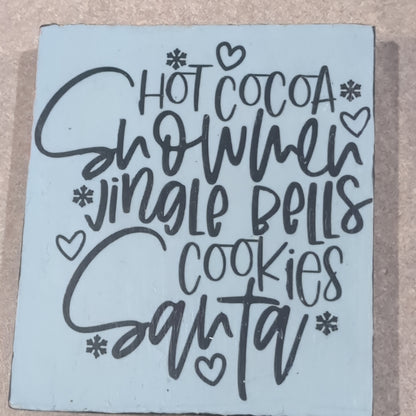 HOT COCOA
Snowmen
JiNGLE BELLS
COOKiES
Santa